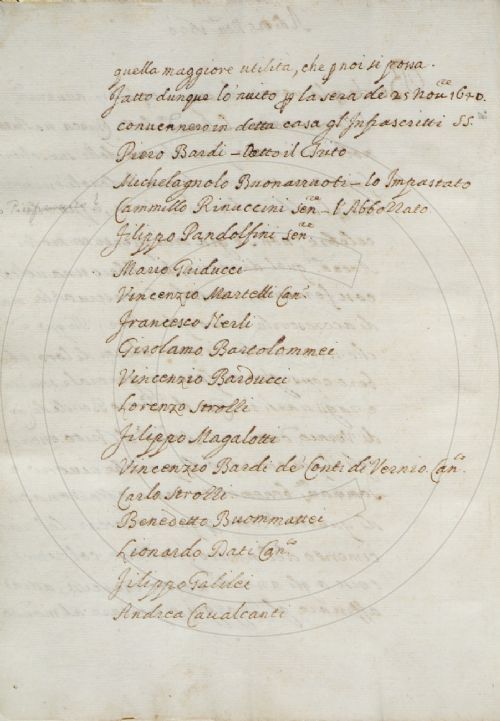 quella maggiore utilità, che p noi si possa.
Fatto dunque lo nuito p la sera de 25 Nou.re 1640.
conuennero in detta casa gl'Infrascritti SS.
Piero Bardi - detto il Trito
Michelagnolo Buonarruoti - lo Impastato
Cammillo Rinuccini Sen.re - l'Abbozzato
Filippo Pandolfini Sen.re
Mario Guiducci
Vincenzio Martelli Can.co
Francesco Nerli
Girolamo Bartolommei
Vincenzio Barducci
Lorenzo Strozzi
Filippo Magalotti
Vincenzio Bardi de Conti di Vernio. Can.co
Carlo Strozzi
Benedetto Buommattei
Lionardo Dati Can.co
Filippo Galilei
Andrea Caualcanti